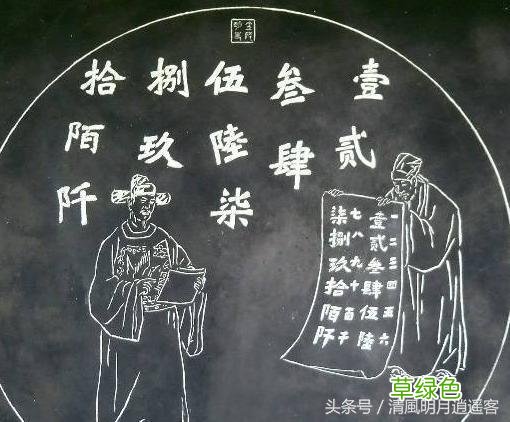 壹貳
叁肆
伍陸柒
捌玖
拾陌阡
一二三四五六
壹貳叁肆伍陸
七八九十百千
柒捌玖拾陌阡
草绿色
头条号／清風明月逍遥客